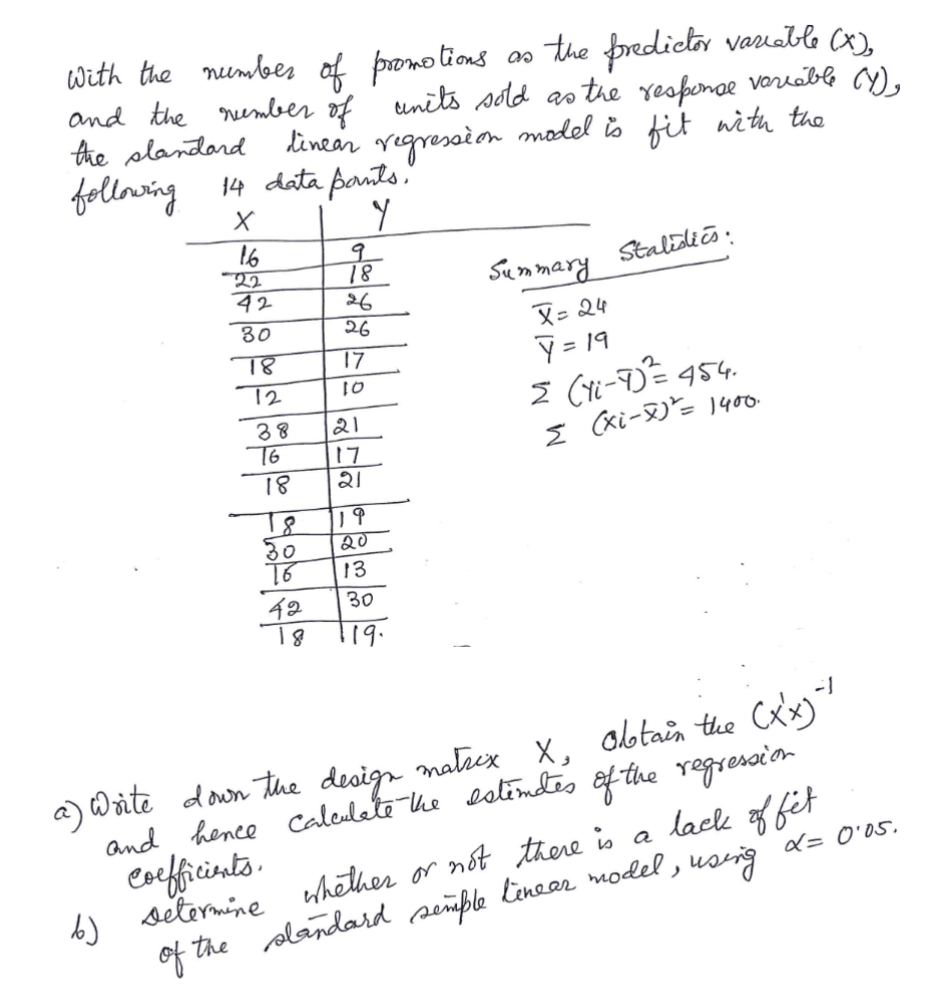 With the number of promotions as the predictor variable (X),
and the number of units sold as the response variable (Y),
the standard linear regression model is fit with the
following 14 data points.
X Y
16 9
22 18
42 26
30 26
18 17
12 10
38 21
16 17
18 21
18 19
30 20
16 13
42 30
18 19.
Summary Statistics:
X̄ = 24
Ȳ = 19
Σ (Yi-Ȳ)² = 454.
Σ (Xi-X̄)² = 1400.
a) Write down the design matrix X, obtain the (X'X)⁻¹
and hence calculate the estimates of the regression
coefficients.
b) Determine whether or not there is a lack of fit
of the standard simple linear model, using α = 0.05.